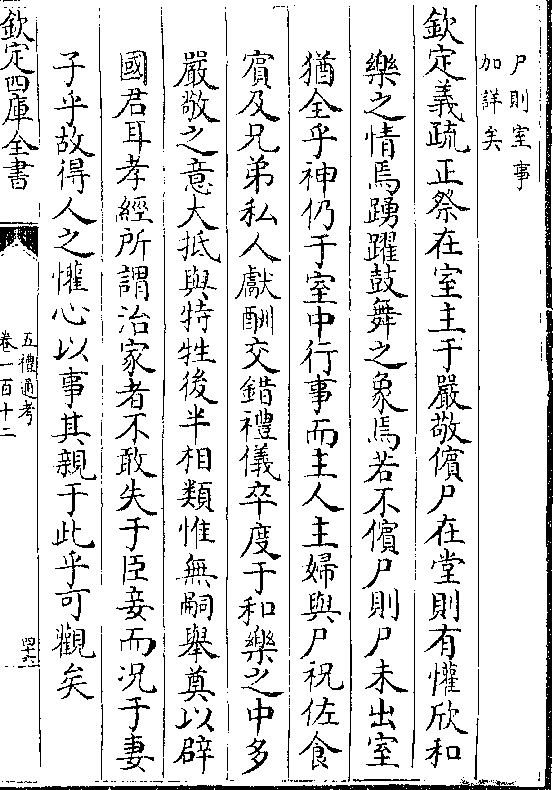 尸則室事
加詳矣
欽定義疏正祭在室主于嚴敬儐尸在堂則有懽欣和
樂之情焉踴躍鼓舞之象焉若不儐尸則尸未出室
猶全乎神仍于室中行事而主人主婦與尸祝佐食
賓及兄弟私人獻酬交錯禮儀卒度于和樂之中多
嚴敬之意大抵與特牲後半相類惟無嗣舉奠以辟
國君耳孝經所謂治家者不敢失于臣妾而况于妻
子乎故得人之懽心以事其親于此乎可觀矣
欽定四庫全書
五禮通考
卷一百十二